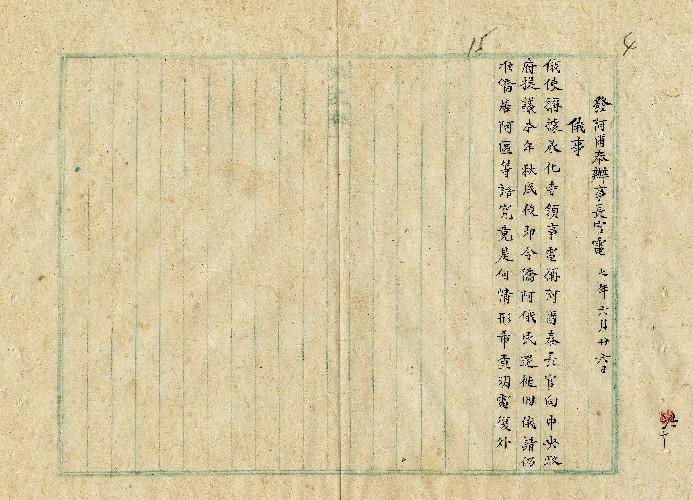 4
15
發阿爾泰辦事長官電 七年六月廿六日
俄事
俄使譯據承化寺領事電稱阿爾泰長官向中央政
府提議本年秋成後即令僑阿俄民還徙回俄請仍
准僑居阿區等語究竟是何情形希查明電復外